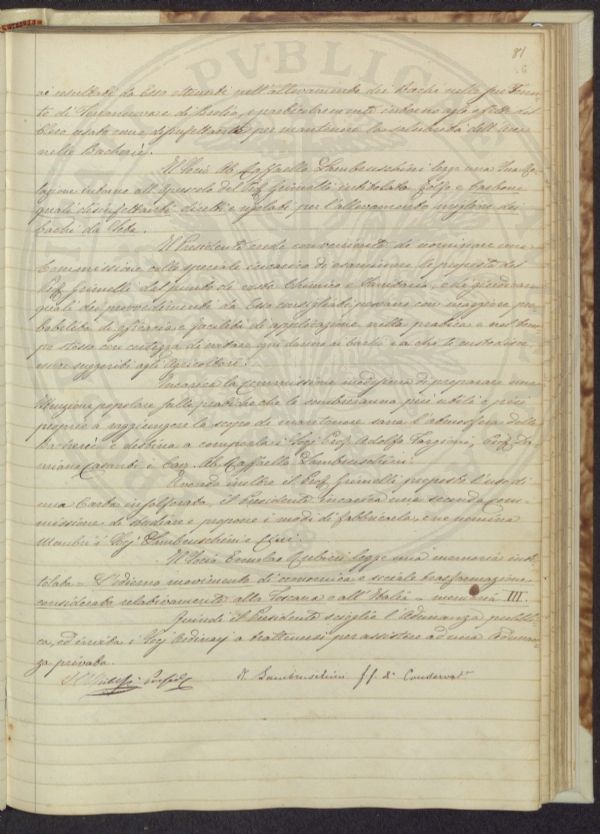 81
ai resultati da Esso ottenuti nell'allevamento dei Bachi nella sua Tenu-
ta di Terranuova e particolarmente intorno agli effetti del
Cloro usato come disinfettante per mantenere la salubrità dell'aria
nelle Bacherie.
Il Socio Ab. Raffaello Lambruschini legge una
intorno all'opuscolo del Prof. Grimelli intitolato Zolfo e Carbone
quali disinfettanti diretti e per l'allevamento migliore dei
bachi da Seta.
Il Presidente crede conveniente di nominare una
Commissione collo speciale incarico di esaminare le proposte del
Prof. Grimelli dal punto di vista Chimico e Sanitario, e
quali dei provvedimenti da Esso consigliati possano con maggiore pro-
babilità di efficacia e facilità di applicazione nella pratica e nel tem-
po stesso con certezza di non danno ai bachi e a chi li custodisce
essere suggeriti agli Agricoltori.
Incarica la Commissione medesima di preparare una
Istruzione popolare sulle pratiche che le sembreranno più utili e più
proprie a raggiungere lo scopo di mantenere sana l'atmosfera delle
Bacherie e destina a comporla i Socj Prof. Adolfo Targioni, Prof. 
e Cav. Ab. Raffaello Lambruschini.
Avendo inoltre il Prof. Grimelli proposto l'uso di
una Carta insolforata, il Presidente incarica una seconda Com-
missione di studiare e proporre i modi di fabbricarla, e ne nomina
Membri i Socj Lambruschini e
Il Socio Ermolao Rubieri legge una memoria inti-
tolata - L'odierno movimento di economica e sociale trasformazione
considerato relativamente alla Toscana e all'Italia - memoria III.
Quindi il Presidente scioglie l'Adunanza pubbli-
ca, ed invita i Socj Ordinarj a trattenersi per assistere ad una Adunan-
za privata.
R. Lambruschini ff. di Conservatre